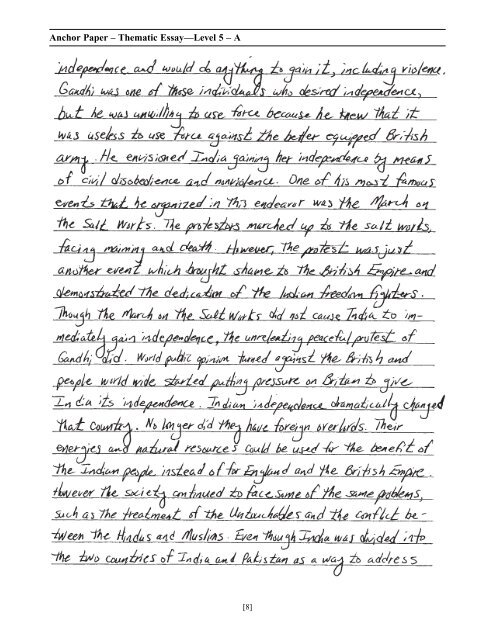 Anchor Paper – Thematic Essay—Level 5 – A
independence and would do anything to gain it, including violence.
Gandhi was one of those individuals who desired independence,
but he was unwilling to use force because he knew that it
was useless to use force against the better equipped British
army. He envisioned India gaining her independence by means
of civil disobedience and nonviolence. One of his most famous
events that he organized in this endeavor was the March on
the Salt Works. The protestors marched up to the salt works,
facing maiming and death. However, the protest was just
another event which brought shame to the British Empire and
demonstrated the dedication of the Indian freedom fighters.
Though the March on the Salt Works did not cause India to im-
mediately gain independence, the unrelenting peaceful protest of
Gandhi did. World public opinion turned against the British and
people world wide started putting pressure on Britain to give
India its independence. Indian independence dramatically changed
that country. No longer did they have foreign overlords. Their
energies and natural resources could be used for the benefit of
the Indian people instead of for England and the British Empire.
However the society continued to face some of the same problems,
such as the treatment of the Untouchables and the conflict be-
tween the Hindus and Muslims. Even though India was divided into
the two countries of India and Pakistan as a way to address
[8]